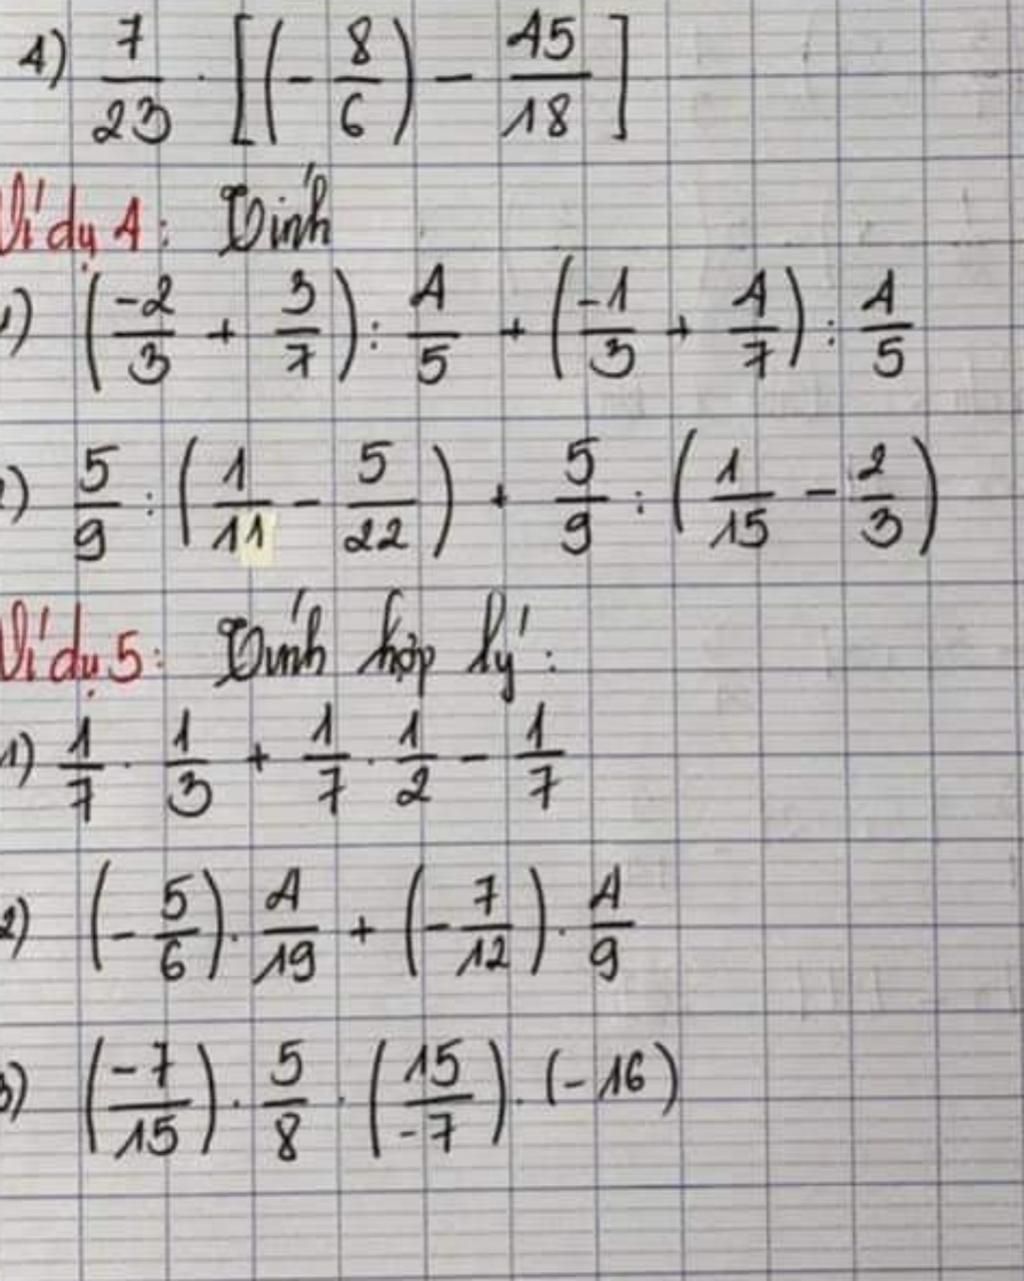 4) 7/23 . [(- 8/6) - 45/18]
Ví dụ 4: Tính
1) (-2/3 + 3/7) : 4/5 + (-1/3 + 4/7) : 4/5
2) 5/9 : (1/11 - 5/22) + 5/9 : (1/15 - 2/3)
Ví dụ 5: Tính hợp lý:
1) 1/7 . 1/3 + 1/7 . 1/2 - 1/7
2) (- 5/6) . 4/19 + (- 7/12) . 4/9
3) (-7/15) . 5/8 . (15/-7) . (-16)